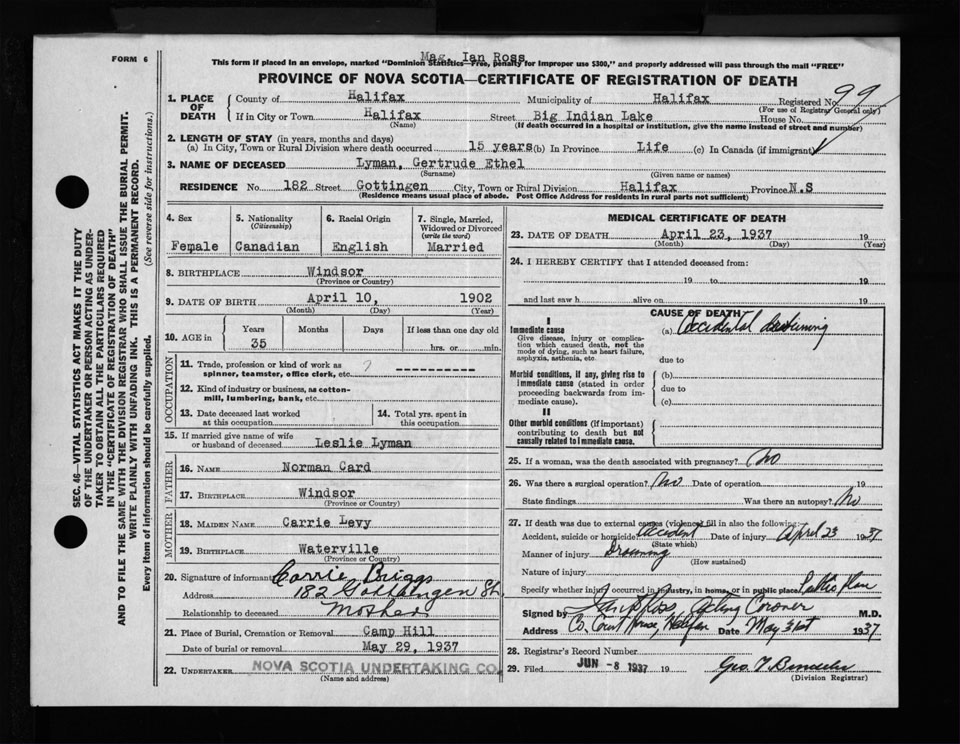 FORM 6
Mag. Ian Ross
This form if placed in an envelope, marked "Dominion Statistics—Free, penalty for improper use $300," and properly addressed will pass through the mail "FREE"
PROVINCE OF NOVA SCOTIA—CERTIFICATE OF REGISTRATION OF DEATH
SEC. 46—VITAL STATISTICS ACT MAKES IT THE DUTY
OF THE UNDERTAKER OR PERSON ACTING AS UNDER-
TAKER TO OBTAIN ALL THE PARTICULARS REQUIRED
IN THE "CERTIFICATE OF REGISTRATION OF DEATH"
AND TO FILE THE SAME WITH THE DIVISION REGISTRAR WHO SHALL ISSUE THE BURIAL PERMIT.
WRITE PLAINLY WITH UNFADING INK. THIS IS A PERMANENT RECORD.
Every item of information should be carefully supplied. (See reverse side for instructions.)
1. PLACE OF DEATH County of Halifax Municipality of Halifax Registered No. 99
(For use of Registrar General only)
If in City or Town Halifax Street Big Indian Lake House No.
(Name) (If death occurred in a hospital or institution, give the name instead of street and number)
2. LENGTH OF STAY (in years, months and days)
(a) In City, Town or Rural Division where death occurred 15 years (b) In Province Life (c) In Canada (if immigrant)
3. NAME OF DECEASED Lyman, Gertrude Ethel
(Surname) (Given name or names)
RESIDENCE No. 182 Street Gottingen City, Town or Rural Division Halifax Province N.S
(Residence means usual place of abode. Post Office Address for residents in rural parts not sufficient)
4. Sex 5. Nationality 6. Racial Origin 7. Single, Married,
(Citizenship) Widowed or Divorced
(write the word)
Female Canadian English Married
8. BIRTHPLACE Windsor
(Province or Country)
9. DATE OF BIRTH April 10, 1902
(Month) (Day) (Year)
10. AGE in Years Months Days If less than one day old
35 hrs. or min.
OCCUPATION
11. Trade, profession or kind of work as
spinner, teamster, office clerk, etc. ? -----------
12. Kind of industry or business, as cotton-
mill, lumbering, bank, etc.
13. Date deceased last worked
at this occupation
14. Total yrs. spent in
this occupation
15. If married give name of wife
or husband of deceased Leslie Lyman
FATHER
16. NAME Norman Card
17. BIRTHPLACE Windsor
(Province or Country)
MOTHER
18. MAIDEN NAME Carrie Levy
19. BIRTHPLACE Waterville
(Province or Country)
20. Signature of informant Carrie Briggs
Address 182 Gottengen St
Relationship to deceased Mother
21. Place of Burial, Cremation or Removal Camp Hill
Date of burial or removal May 29, 1937
22. UNDERTAKER NOVA SCOTIA UNDERTAKING CO.
(Name and address)
MEDICAL CERTIFICATE OF DEATH
23. DATE OF DEATH April 23, 1937 19
(Month) (Day) (Year)
24. I HEREBY CERTIFY that I attended deceased from:
19 to 19
and last saw h alive on 19
CAUSE OF DEATH
I
Immediate cause
Give disease, injury or complica-
tion which caused death, not the
mode of dying, such as heart failure,
asphyxia, asthenia, etc.
(a) Accidental drowning
due to
Morbid conditions, if any, giving rise to
immediate cause (stated in order
proceeding backwards from im-
mediate cause).
(b)
due to
(c)
II
Other morbid conditions (if important)
contributing to death but not
causally related to immediate cause.
25. If a woman, was the death associated with pregnancy? No
26. Was there a surgical operation? No Date of operation 19
State findings Was there an autopsy? No
27. If death was due to external causes (violence) fill in also the following:
Accident, suicide or homicide Accident Date of injury April 23 1937
(State which)
Manner of injury Drowning
(How sustained)
Nature of injury
Specify whether injury occurred in industry, in home, or in public place Public place
Signed by Ian B Ross, Acting Coroner M.D.
Address Co. Court House, Halifax Date May 31st 1937
28. Registrar's Record Number
29. Filed JUN -8 1937 19
(Division Registrar)